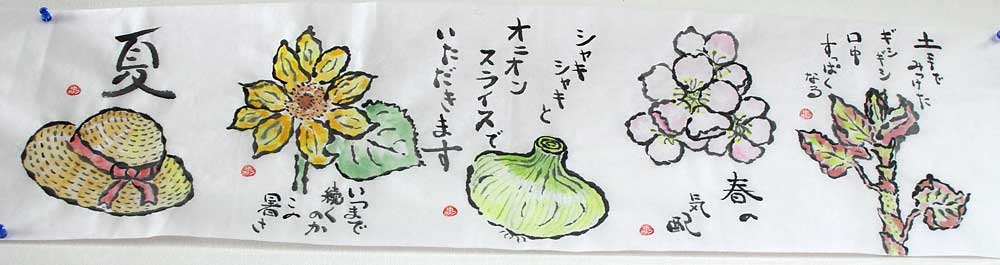 土手で
みつけた
ギシギシ
口中
すっぱく
なる
春の
気配
シャキ
シャキと
オニオン
スライスで
いただきます
いつまで
続くのか
この
暑さ
夏